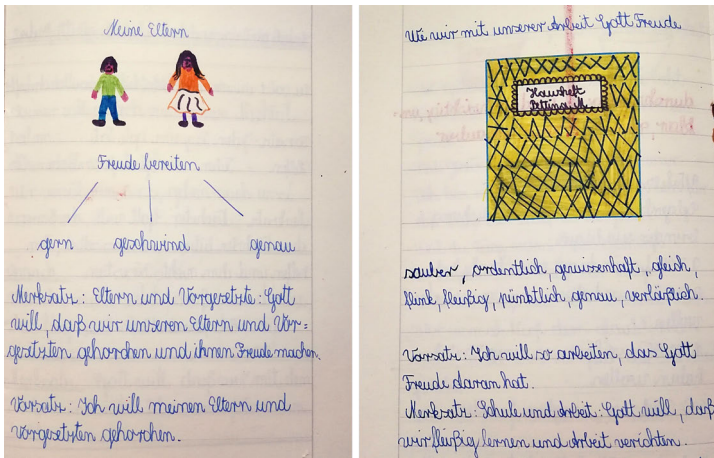 Meine Eltern
Freude bereiten
gern geschwind genau
Merksatz: Eltern und Vorgesetzte: Gott
will, daß wir unseren Eltern und Vor=
gesetzten gehorchen und ihnen Freude machen.
Vorsatz: Ich will meinen Eltern und
Vorgesetzten gehorchen.
We wir mit unserer Arbeit Gott Freude
Hausheft
Bettina M
sauber, ordentlich, gewissenhaft, gleich,
flink, fleißig, pünktlich, genau, verläßlich.
Vorsatz: Ich will so arbeiten, das Gott
Freude daran hat.
Merksatz: Schule und Arbeit: Gott will, daß
wir fleißig lernen und Arbeit verichten.